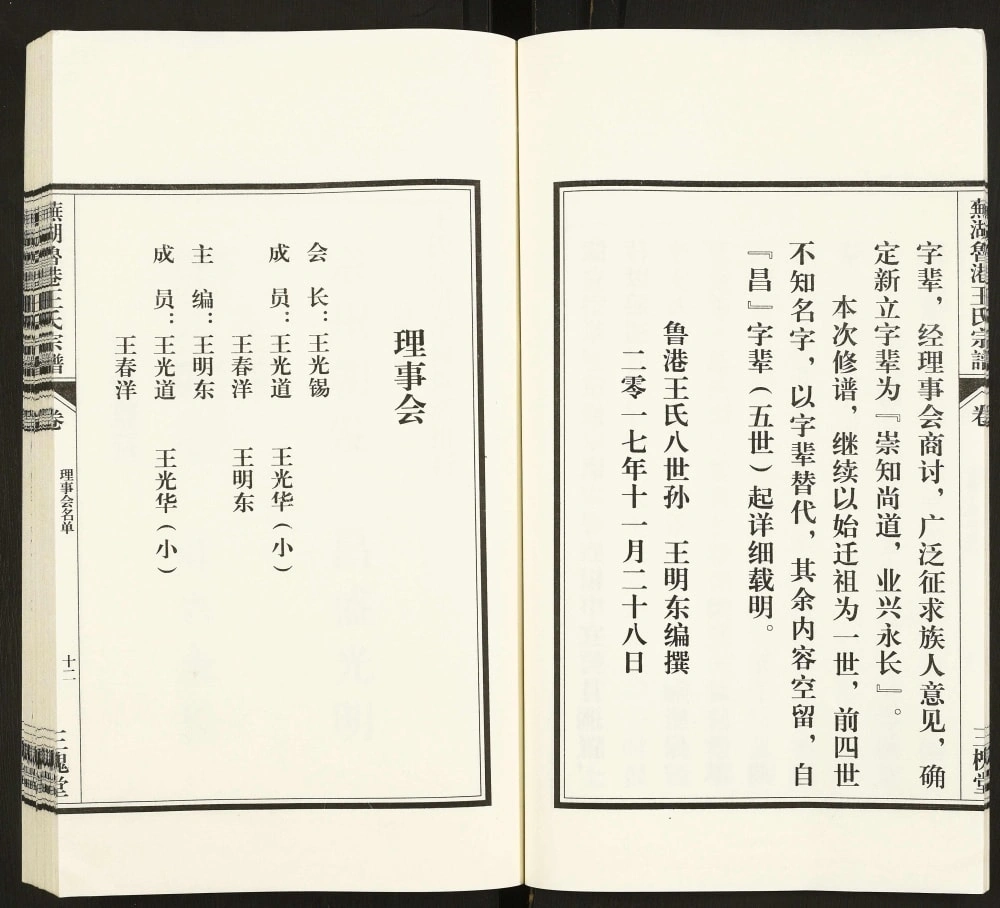 蕪湖魯港王氏宗譜
卷
三槐堂
字辈，经理事会商讨，广泛征求族人意见，确
定新立字辈为『崇知尚道，业兴永长』。
本次修谱，继续以始迁祖为一世，前四世
不知名字，以字辈替代，其余内容空留，自
『昌』字辈（五世）起详细载明。
鲁港王氏八世孙　王明东编撰
二零一七年十一月二十八日
理事会
会　长：王光锡
成　员：王光道　王光华（小）
王春洋　王明东
主　编：王明东
成　员：王光道　王光华（小）
王春洋
蕪湖魯港王氏宗譜
卷
理事会名单
十二
三槐堂